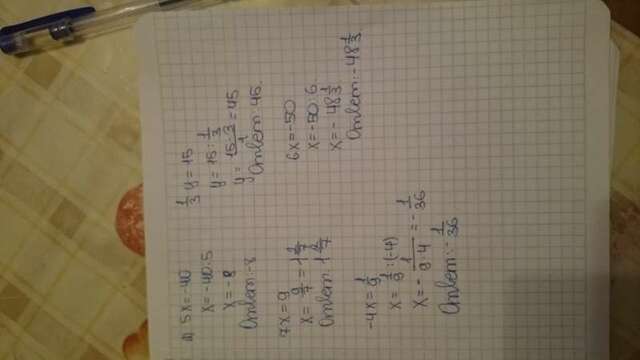 а) 5x=-40
x=-40:5
x=-8
Ответ:-8
1/3 y=15
y=15:1/3
y=15·3/1=45
Ответ 45.
7x=9
x=9/7=1 2/7
Ответ: 1 2/7
6x=-50
x=-50:6
x=-48 1/3
Ответ:-48 1/3
-4x=1/9
x=1/9:(-4)
x=-1/9·4=-1/36
Ответ:-1/36